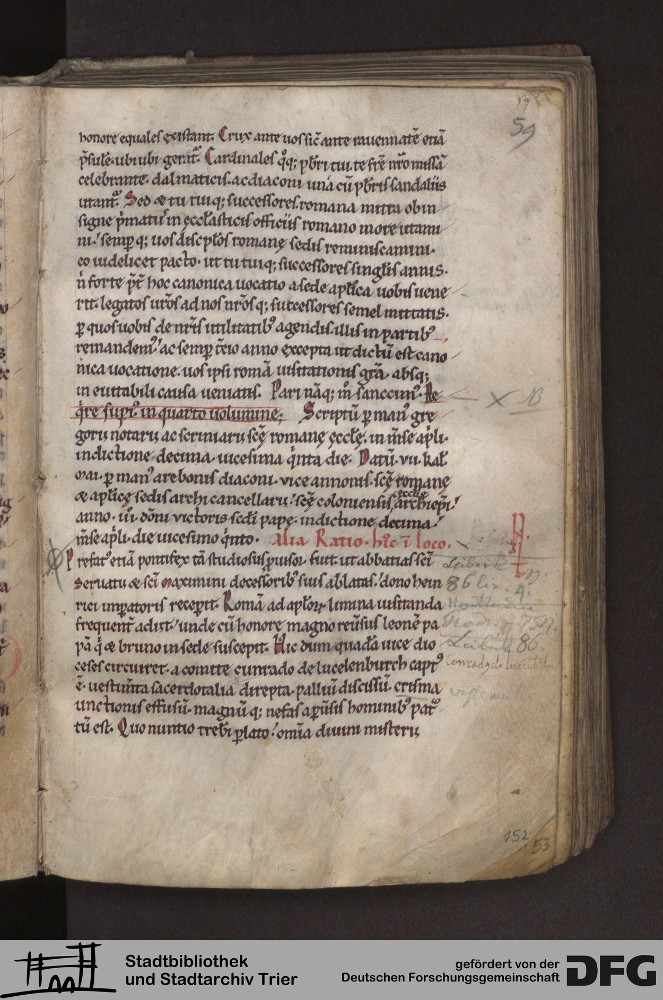 59
honore equales existant. Crux ante uos sic ante rauennatē etiā
p̄sulē. ubi ubi gerat᷒. Cardinales q̊q; pb̄ri tui. te frē nr̄o missā
celebrante. dalmaticis. ac diaconi unā cū pb̄ris sandaliis
utant᷒. Sed & tu tuiq; successores. romana mitra ob in
signe p̄mat᷒ in eccłasticis officiis romano more utami
ni. semp q; uos discip̄los romanę sedis reminiscamini.
eo uidelicet pacto. ut tu tuiq; successores singłis annis.
n̄ forte p̄t hoc canonica uocatio a sede apłica uobis uene
rit. legatos ur̄os ad nos nr̄osq; successores semel mittatis.
ꝑ quos uobis de nr̄is utilitatib᷒ agendis. illis in partib᷒
remandem᷒. ac semp t̄cio anno excepta ut dictū est cano
nica uocatione. uos ipsi romā uisitationis gr̄a. absq;
in euitabili causa ueniatis. Pari nāq; m̊ sanccim᷒. Re
q̊re supi᷒ in quarto uolumine; Scriptū ꝑ man᷒ gre
gorii notarii ac scriniarii scę̄ romanę eccłę. in m̄se apłi.
indictione decima. uicesima q̊nta die. Datū. vii. kał.
mai. ꝑ man᷒ arebonis diaconi. uice annonis. scę̄ romanę
& apłicę sedis archi cancellarii. scę̄ coloniensis eccłię archiepi᷒.
anno. iii. dōni uictoris scd̄i papę. indictione decima.
m̄se apłi. die uicesimo q̊nto. Alia Ratio. h̊c ī loco.
Prefat᷒ etiā pontifex tā studiosus ꝓuisor. fuit. ut abbatias sc̄i
Seruatii & sc̄i Maximini decessorib᷒ suis ablatas. dono hein
rici imp̄atoris receperit. Romā ad apłoꝝ limina uisitanda
frequent᷒ adiit. unde cū honore magno reusus leonē pa
pā q̊ & bruno in sede suscepit. Hic dum quadā uice dio
ceses circuiret. a comite cunrado de lucelenburch capt᷒
ē. uestimta sacerdotalia direpta. palliū discissū. crisma
unctionis effusū. magnū q; nefas a p̄uisis hominib᷒ pat᷒
tū est. Quo nuntio treb̄i ꝑlato. omīa diuini misterii
152
53
Stadtbibliothek
und Stadtarchiv Trier
gefördert von der
Deutschen Forschungsgemeinschaft
DFG